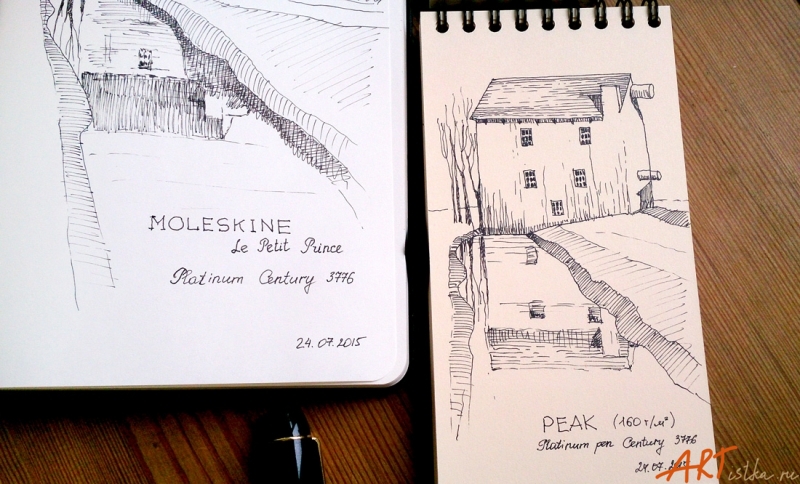 MOLESKINE
Le Petit Prince
Platinum Century 3776
24.07.2015
PEAK (160 г/м²)
Platinum pen Century 3776
24.07.
ARTistka.ru